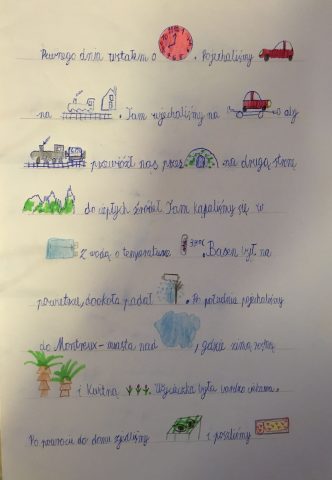 Pewnego dnia wstałem o . Pojechaliśmy
na . Tam wjechaliśmy na a aby
przewiózł nas przez na drugą stronę
do ciepłych źródeł. Tam kąpaliśmy się w
z wodą o temperaturze 33°C. Basen był na
powietrzu, dookoła padał . Po południu pojechaliśmy
do Montreux - miasta nad , gdzie zimą rosną
i kwitną . Wycieczka była bardzo ciekawa.
Po powrocie do domu zjedliśmy i poszliśmy